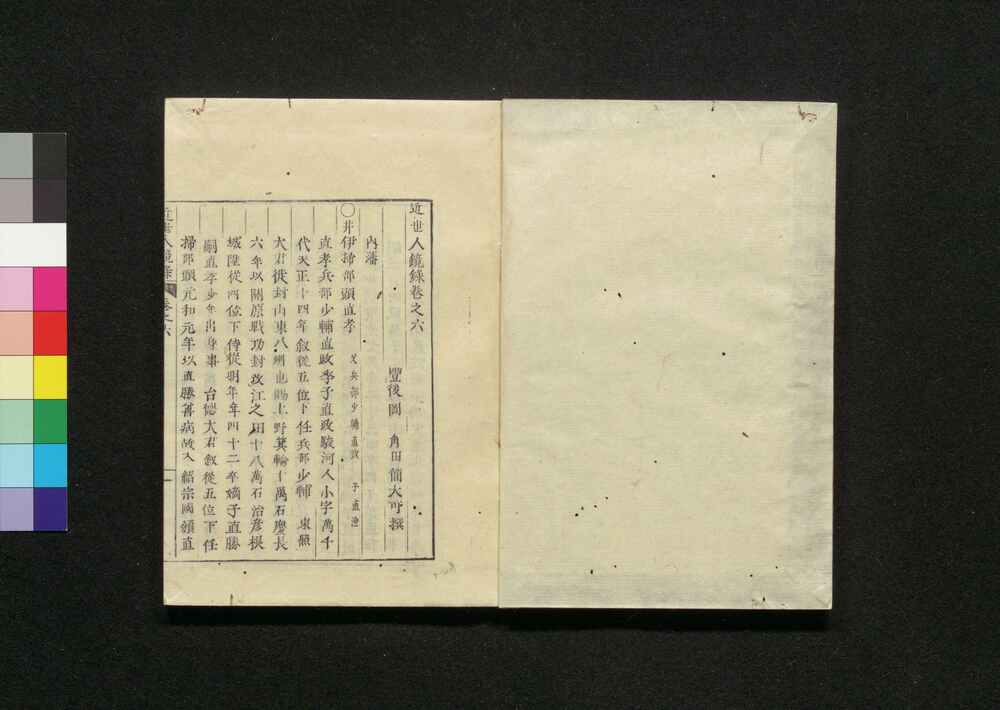 近世人鏡録卷之六
豐後岡 角田簡大可撰
內藩
○井伊掃部頭直孝 父兵部少輔直政 子直澄
直孝兵部少輔直政季子直政駿河人小字萬千
代天正十四年叙從五位下任兵部少輔 東照
大君徙封山東八州也賜上野箕輪十萬石慶長
六年以關原戰功封改江之田十八萬石治彦根
城陞從四位下侍從明年年四十二卒嫡子直勝
嗣直孝少年出身事 台德大君叙從五位下任
掃部頭元和元年以直勝善病故入紹宗國領直
近世人鏡録 卷之六 一